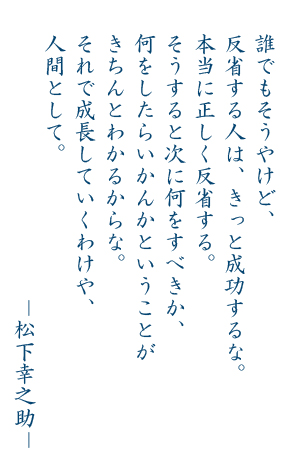 誰でもそうやけど、
反省する人は、きっと成功するな。
本当に正しく反省する。
そうすると次に何をすべきか、
何をしたらいかんかということが
きちんとわかるからな。
それで成長していくわけや、
人間として。
―松下幸之助―